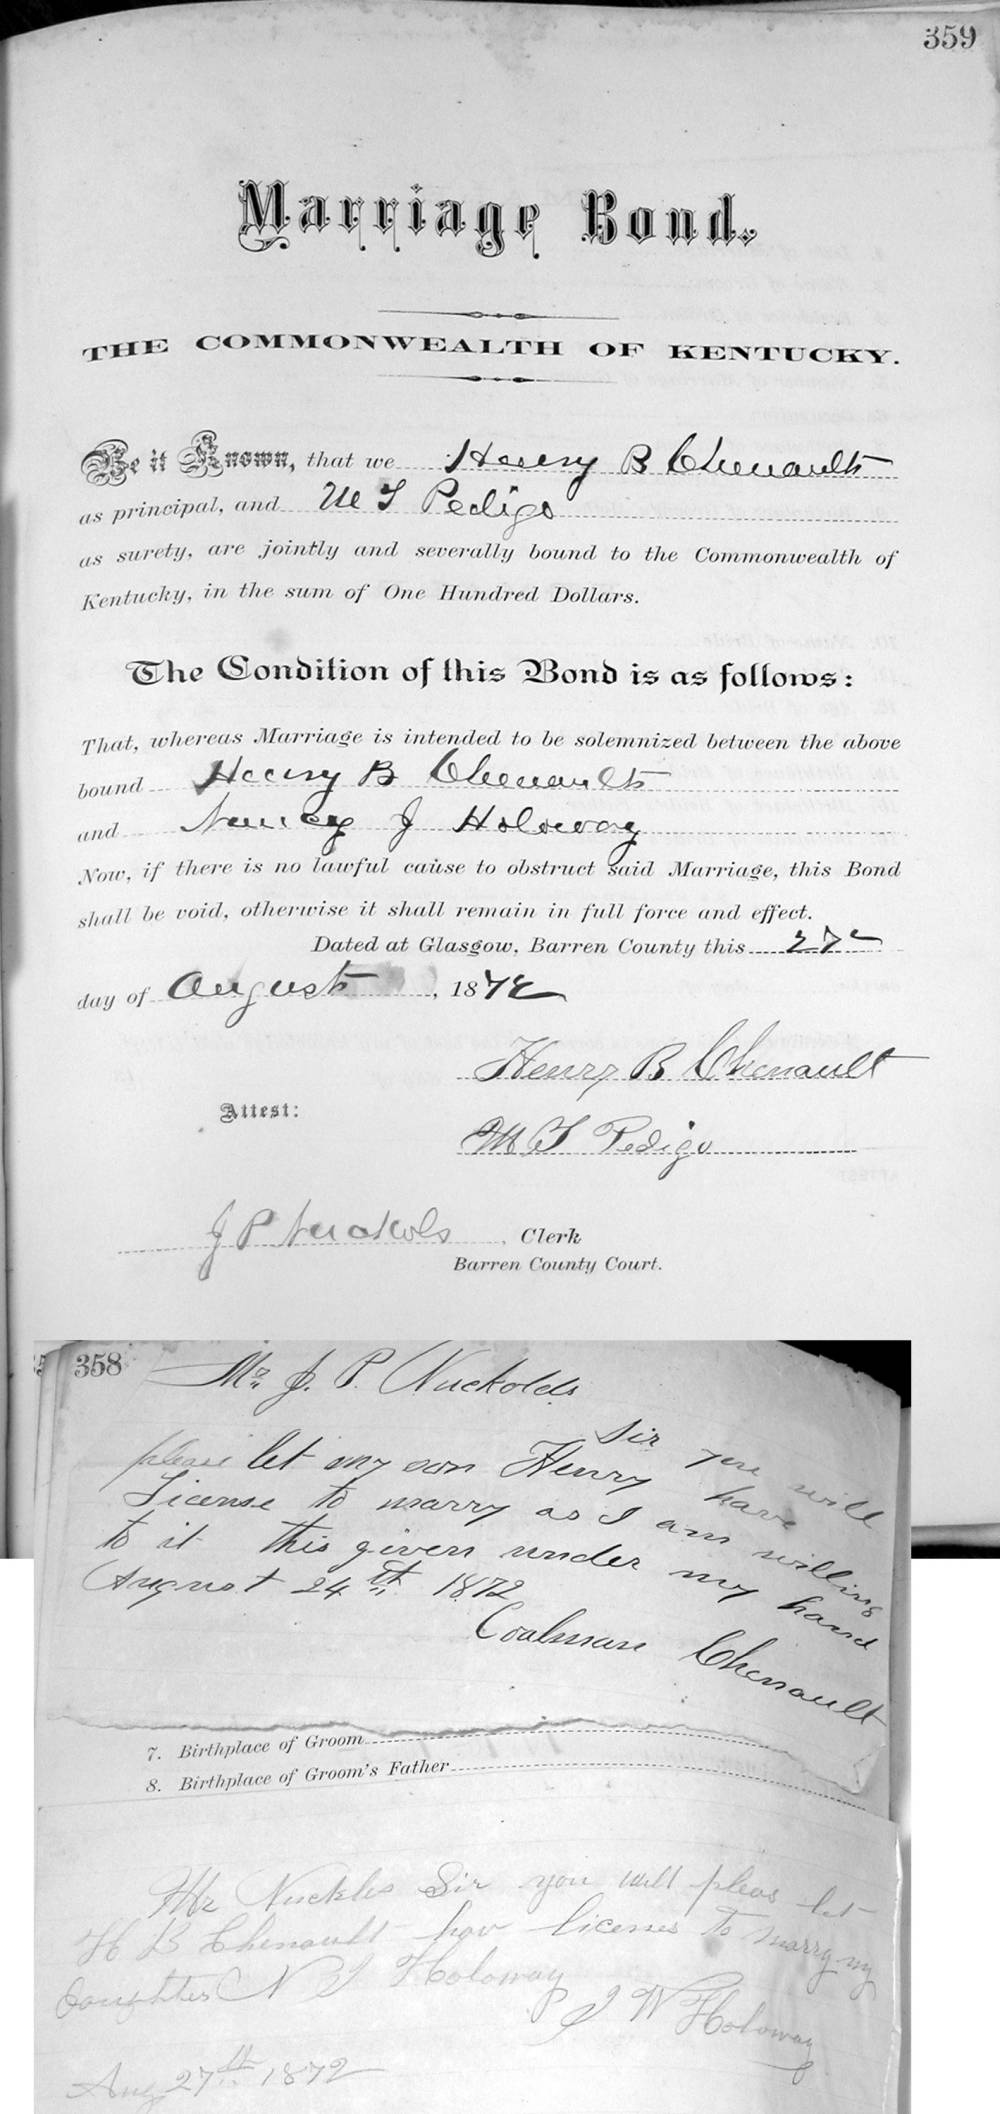 359
Marriage Bond.
THE COMMONWEALTH OF KENTUCKY.
Be it Known, that we Henry B Chenault
as principal, and M T Pedigo
as surety, are jointly and severally bound to the Commonwealth of
Kentucky, in the sum of One Hundred Dollars.
The Condition of this Bond is as follows:
That, whereas Marriage is intended to be solemnized between the above
bound Henry B Chenault
and Nancy J Holoway
Now, if there is no lawful cause to obstruct said Marriage, this Bond
shall be void, otherwise it shall remain in full force and effect.
Dated at Glasgow, Barren County this 27
day of August, 1872
Henry B Chenault
Attest:
M T Pedigo
J P Nuckols, Clerk
Barren County Court.
358
Mr. J. P. Nuckolds
Sir you will
please let my son Henry have
License to marry as I am willing
to it this given under my hand
August 24th 1872
Coalman Chenault
7. Birthplace of Groom
8. Birthplace of Groom's Father
Mr Nuckles Sir you will pleas let
H B Chenault hav licenes to marry my
daughter N J Holoway
J W Holoway
Aug 27th 1872